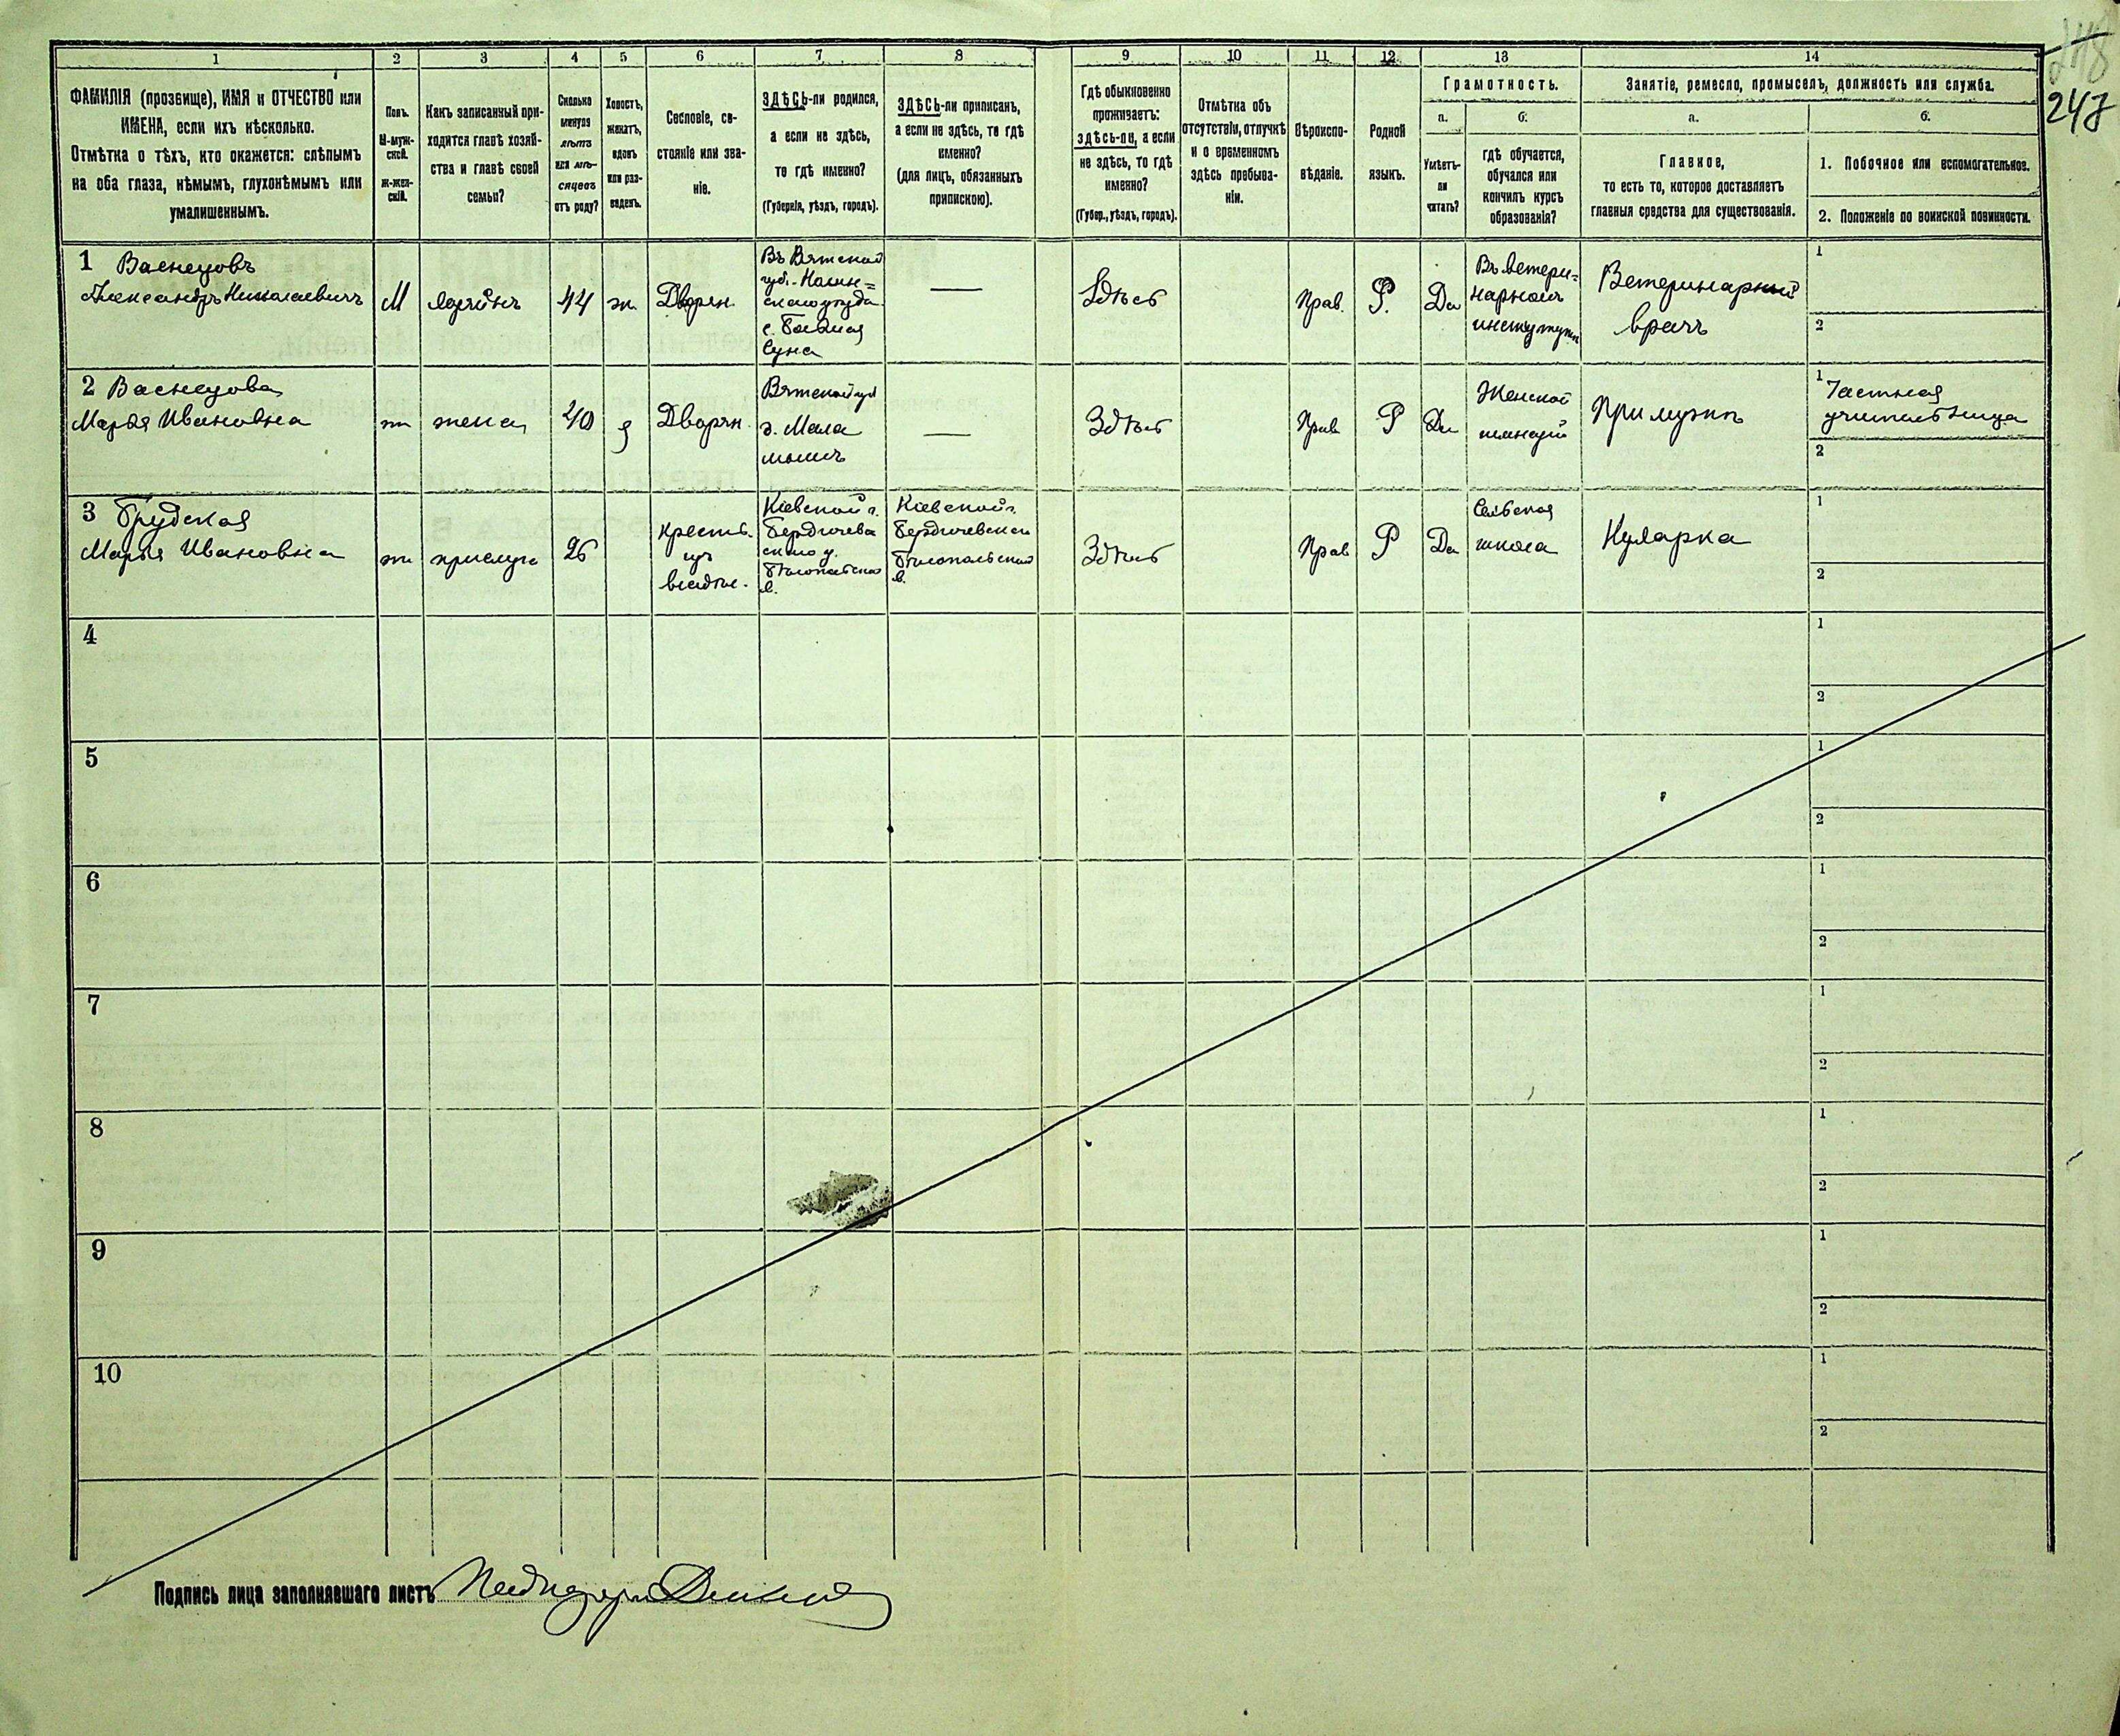 247
1 2 3 4 5 6 7 8 9 10 11 12 13 14
ФАМИЛІЯ (прозвище), ИМЯ и ОТЧЕСТВО или
ИМЕНА, если ихъ нѣсколько.
Отмѣтка о тѣхъ, кто окажется: слѣпымъ
на оба глаза, нѣмымъ, глухонѣмымъ или
умалишеннымъ.
Полъ.
М-муж-
ской.
ж-жен-
скій.
Какъ записанный при-
ходится главѣ хозяй-
ства и главѣ своей
семьи?
Сколько
минуло
лѣтъ
или мѣ-
сяцевъ
отъ роду?
Холостъ,
женатъ,
вдовъ
или раз-
веденъ.
Сословіе, со-
стояніе или зва-
ніе.
ЗДѢСЬ-ли родился,
а если не здѣсь,
то гдѣ именно?
(Губернія, уѣздъ, городъ).
ЗДѢСЬ-ли приписанъ,
а если не здѣсь, то гдѣ
именно?
(для лицъ, обязанныхъ
припискою).
Гдѣ обыкновенно
проживаетъ:
здѣсь-ли, а если
не здѣсь, то гдѣ
именно?
(Губер., уѣздъ, городъ).
Отмѣтка объ
отсутствіи, отлучкѣ
и о временномъ
здѣсь пребыва-
ніи.
Вѣроиспо-
вѣданіе.
Родной
языкъ.
Грамотность.
а.
Умѣетъ-
ли
читать?
б.
гдѣ обучается,
обучался или
кончилъ курсъ
образованія?
Занятіе, ремесло, промыселъ, должность или служба.
а.
Главное,
то есть то, которое доставляетъ
главныя средства для существованія.
б.
1. Побочное или вспомогательное.
2. Положеніе по воинской повинности.
1 Васнецовъ
Александръ Николаевичъ
М
хозяинъ
44
ж.
Дворян.
Въ Вятской
губ. Нолин=
скаго уѣзда
с.
Суна
—
Здѣсь
Прав.
Р.
Да
Въ ветери=
нарномъ
институтѣ
Ветеринарный
врачъ
1
2
2 Васнецова
Марья Ивановна
ж
жена
40
з
Дворян.
Вятской губ
г. Мала
мыжъ
—
Здѣсь
Прав
Р
Да
Женской
гимназіи
При мужѣ
1 Частная
учительница
2
3 Грудская
Марья Ивановна
ж
прислуга
26
Крестья.
изъ
владѣл.
Кіевской г.
Бердичев
скаго у.
Бѣлопольской
в.
Кіевской г.
Бердичевскаго
Бѣлопольской
в.
Здѣсь
Прав
Р
Да
Сельская
школа
Кухарка
1
2
4
1
2
5
1
2
6
1
2
7
1
2
8
1
2
9
1
2
10
1
2
Подпись лица заполнявшаго листъ